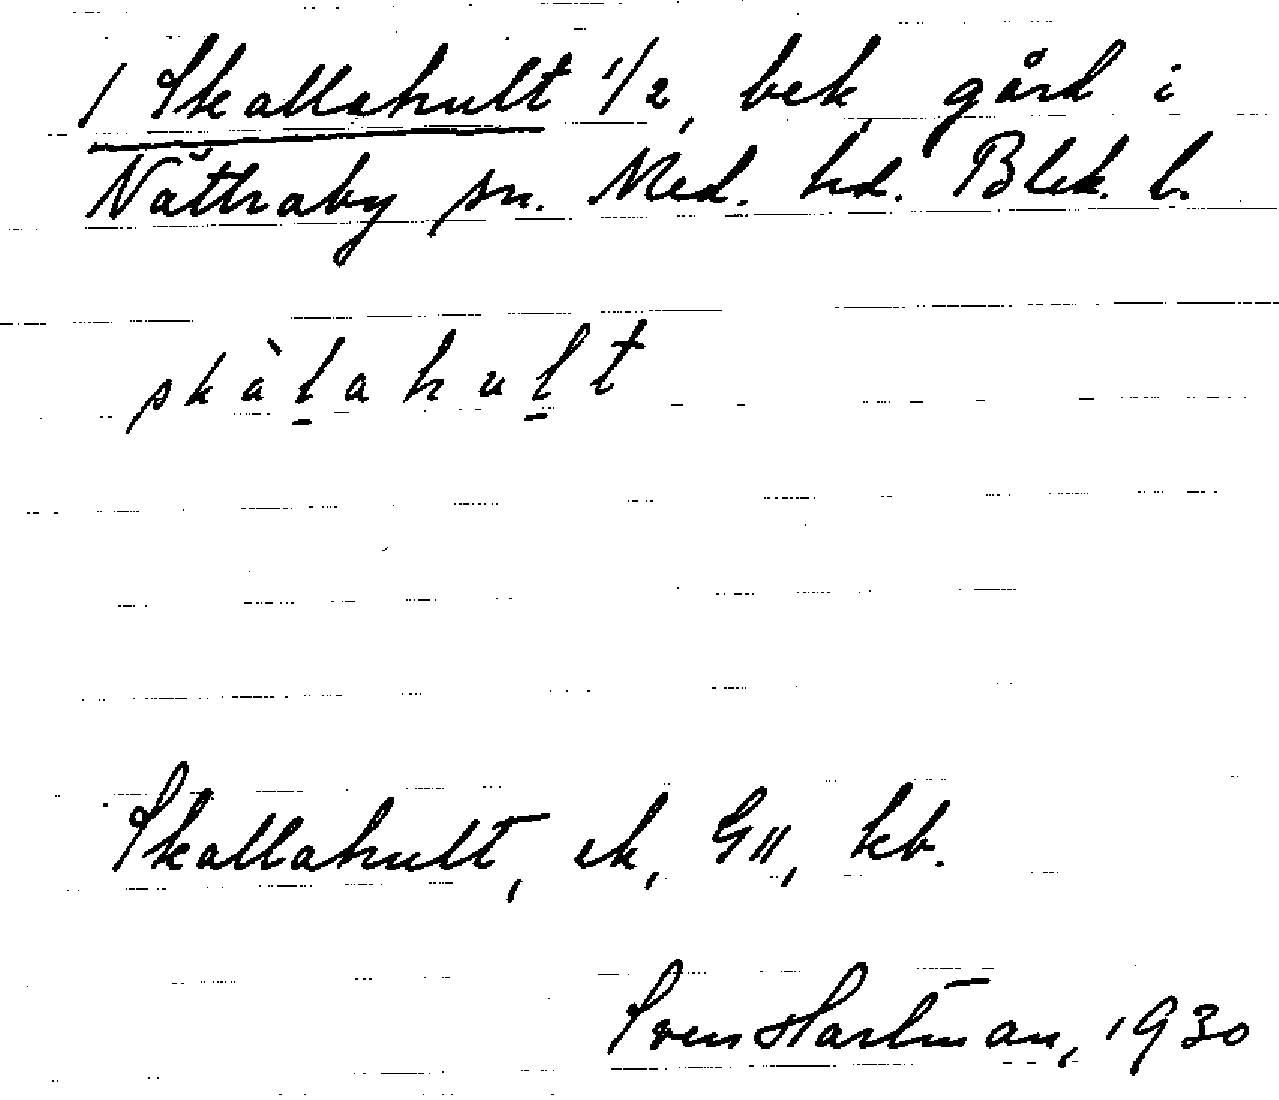 / Skallahult 1/2, bek gård i
Nättraby sn. Med. hd. Blek. l.
skàl̠ahul̠t
Skallahult, ek, GII, kb.
Sven Hartman, 1930